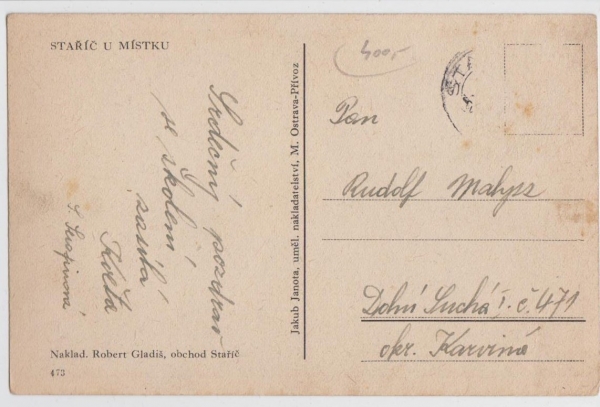 STAŘÍČ U MÍSTKU
Srdečný pozdrav
se školení
zasílá
Jakub Janota, uměl. nakladatelství, M. Ostrava-Přívoz
Naklad. Robert Gladiš, obchod Staříč
473
400,-
Pan
Rudolf Malysz
Dolní Suchá I. č. 471
okr. Karviná